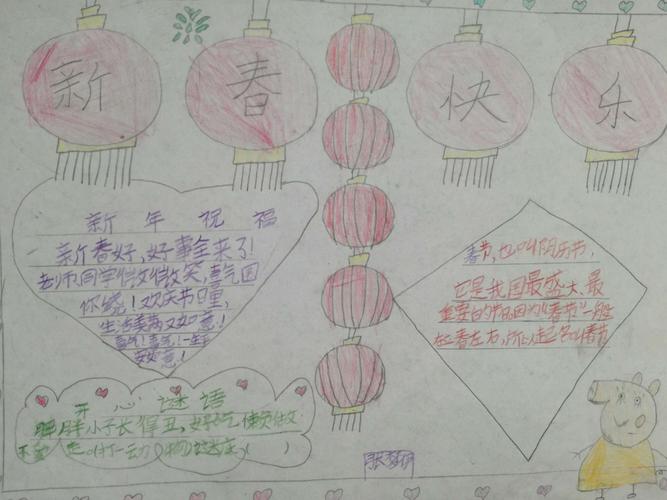 新春快乐
新年祝福
新春好,好事全来了!
老师同学微微笑,喜气围
你绕!欢庆节日里,
生活美满又如意!
喜气!喜气!一生
安如意!
春节,也叫阴历节,
它是我国最盛大、最
重要的节日因为"春节"一般
在春左右,所以起名叫春节
开心谜语
胖胖小子长得丑,好吃懒做
不爱走